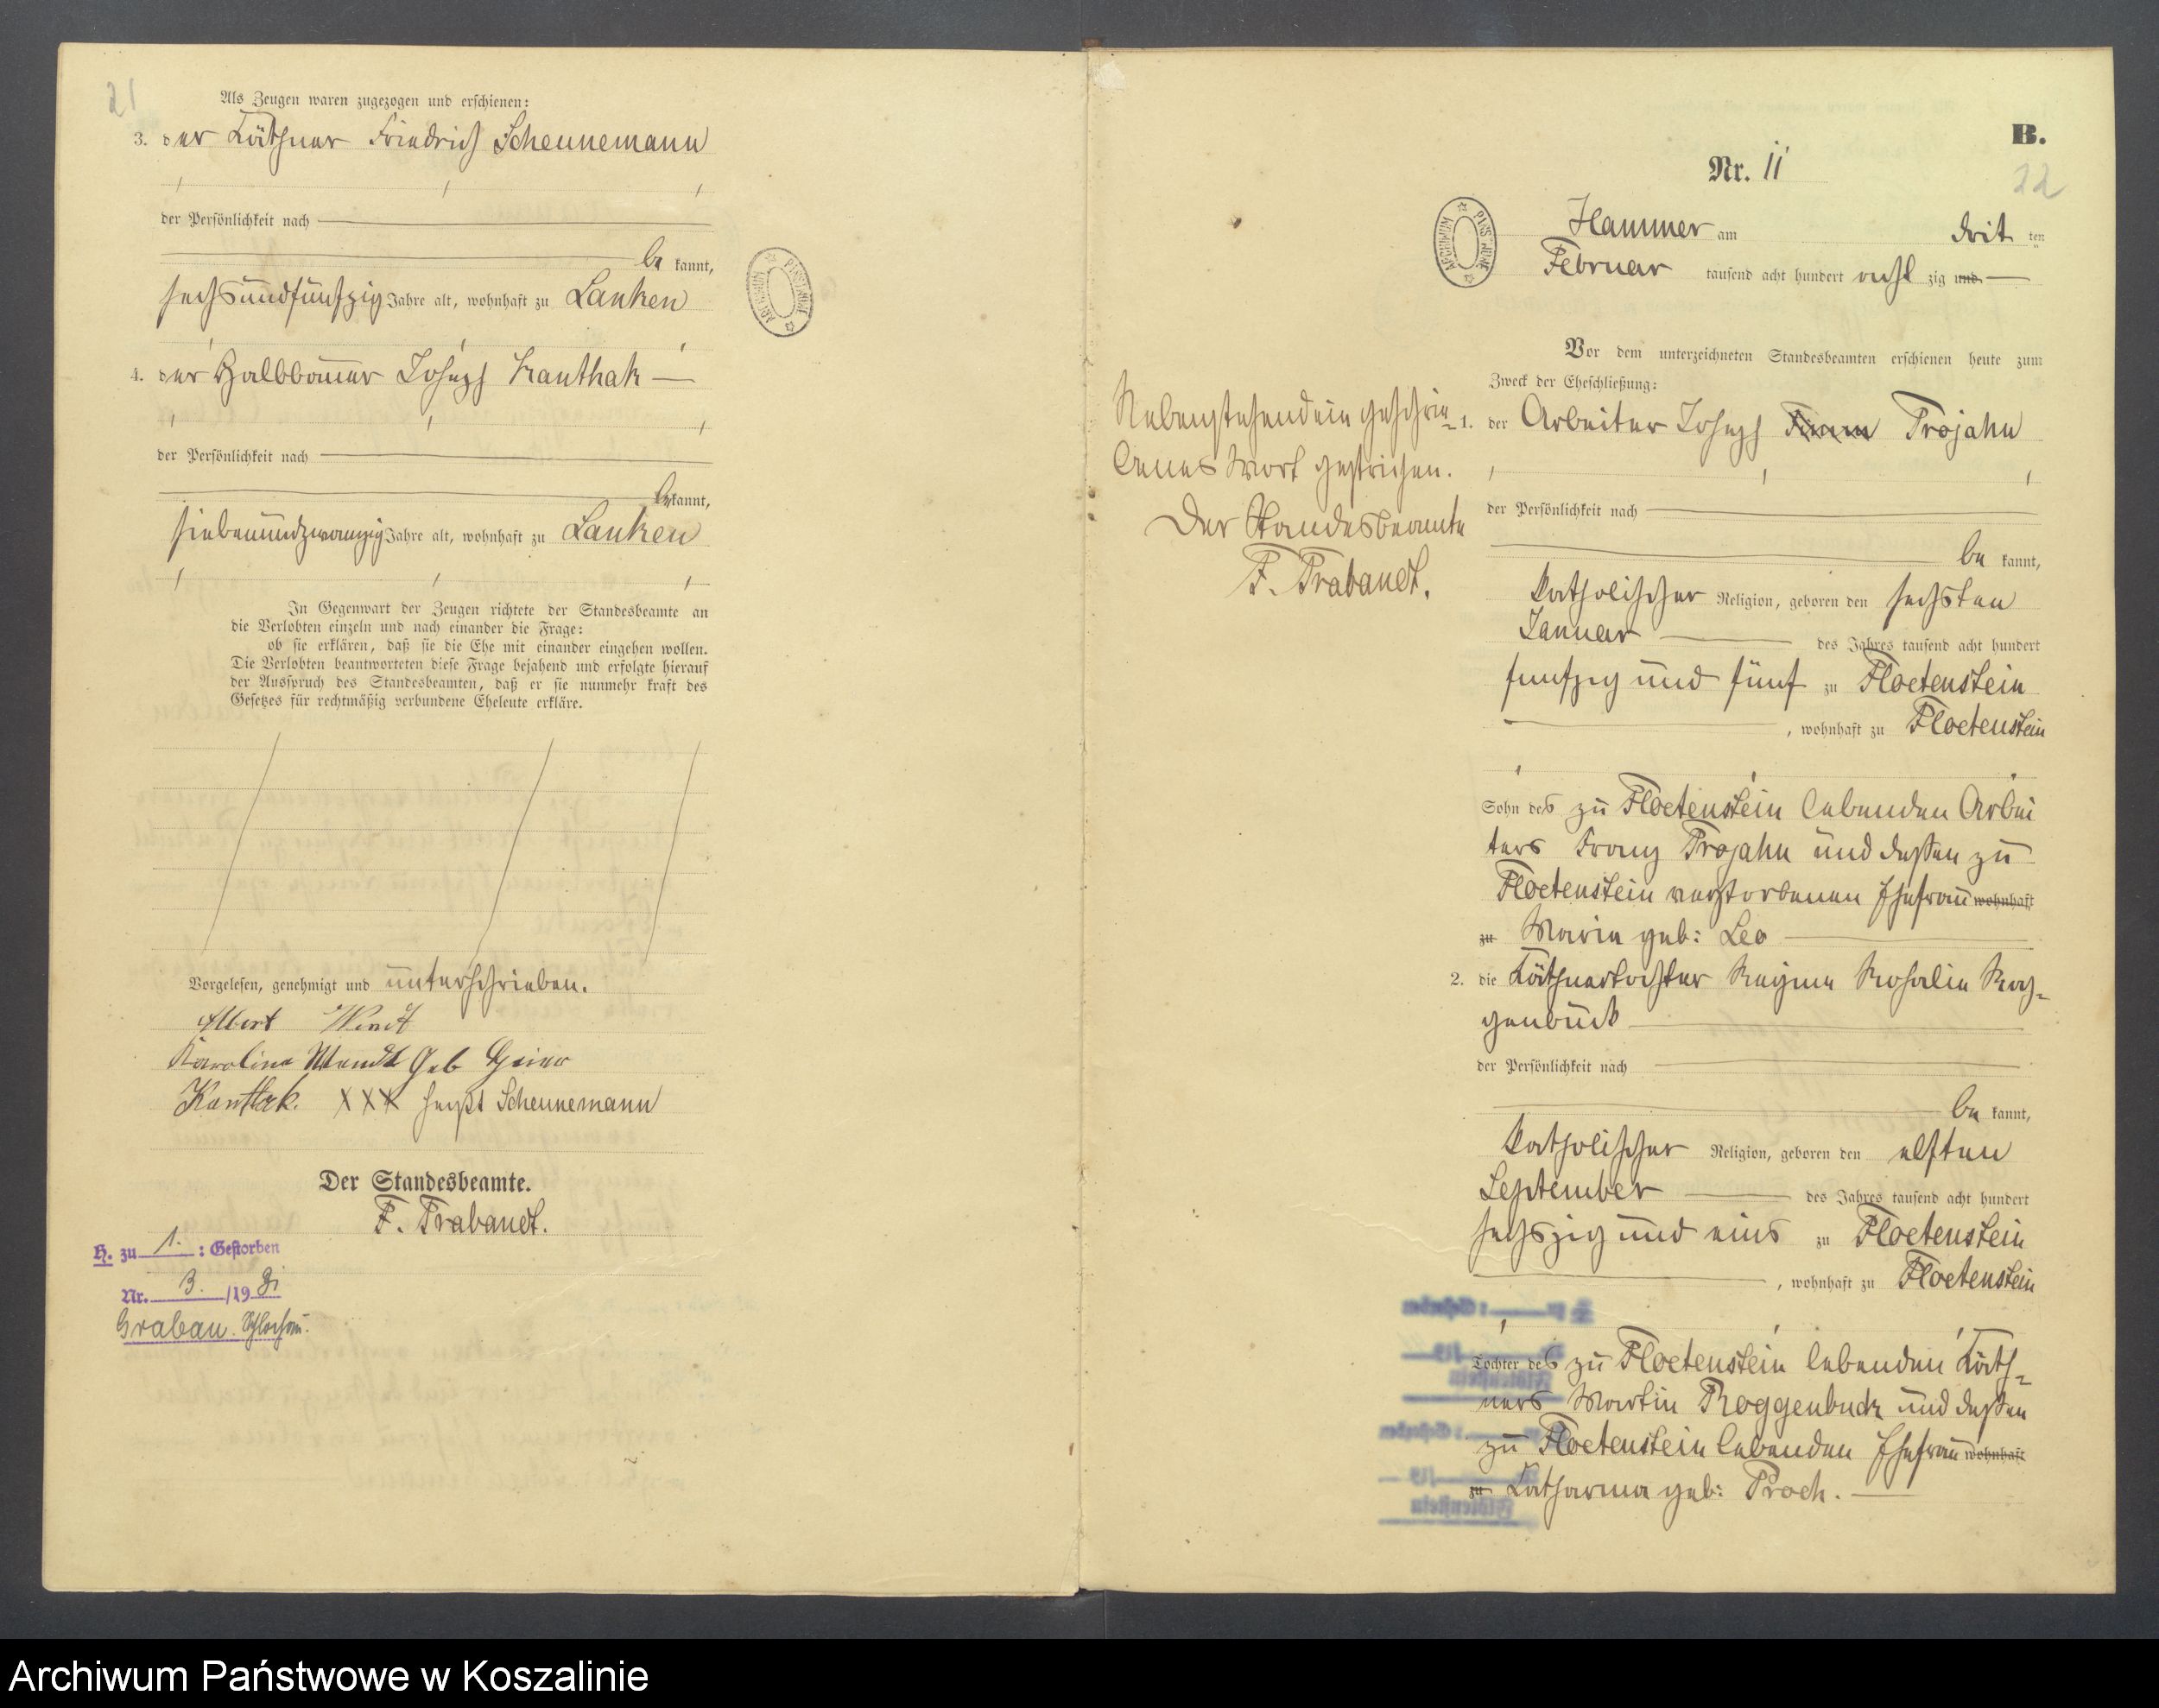 21
Als Zeugen waren zugezogen und erschienen:
3. der Käthner Friedrich Scheunemann
der Persönlichkeit nach
be kannt,
sechsundfünfzig Jahre alt, wohnhaft zu Lanken
4. der Halbbauer Joseph Kanthak
der Persönlichkeit nach
bekannt,
siebenundzwanzig Jahre alt, wohnhaft zu Lanken
In Gegenwart der Zeugen richtete der Standesbeamte an
die Verlobten einzeln und nach einander die Frage:
ob sie erklären, daß sie die Ehe mit einander eingehen wollen.
Die Verlobten beantworteten diese Frage bejahend und erfolgte hierauf
der Ausspruch des Standesbeamten, daß er sie nunmehr kraft des
Gesetzes für rechtmäßig verbundene Eheleute erkläre.
Vorgelesen, genehmigt und unterschrieben.
Albert Wendt
Karoline Wendt Geb Geier
Kanthak. XXX heißt Scheunemann
Der Standesbeamte.
F. Trabandt.
H. zu 1. : Gestorben
Nr. 3. /19 31
Grabau. Schlochau.
ARCHIWUM PAŃSTWOWE
B.
Nr. 11
22
ARCHIWUM PAŃSTWOWE
Hammer am drit ten
Februar tausend acht hundert acht zig und
Vor dem unterzeichneten Standesbeamten erschienen heute zum
Zweck der Eheschließung:
Nebenstehend ein geschrie-
benes Wort gestrichen.
Der Standesbeamte
F. Trabandt.
1. der Arbeiter Joseph Trojahn
der Persönlichkeit nach
be kannt,
katholischer Religion, geboren den sechsten
Januar des Jahres tausend acht hundert
funfzig und fünf zu Floetenstein
, wohnhaft zu Floetenstein
Sohn des zu Floetenstein lebenden Arbei
ters Franz Trojahn und dessen zu
Floetenstein verstorbenen Ehefrau wohnhaft
zu Maria geb: Leo
2. die Käthnertochter Regina Rosalie Rog-
genbuck
der Persönlichkeit nach
be kannt,
katholischer Religion, geboren den elften
September des Jahres tausend acht hundert
sechszig und eins zu Floetenstein
, wohnhaft zu Floetenstein
Tochter des zu Floetenstein lebenden Käth-
ners Martin Roggenbuck und dessen
zu Floetenstein lebenden Ehefrau wohnhaft
zu Katharina geb: Proch.
Archiwum Państwowe w Koszalinie